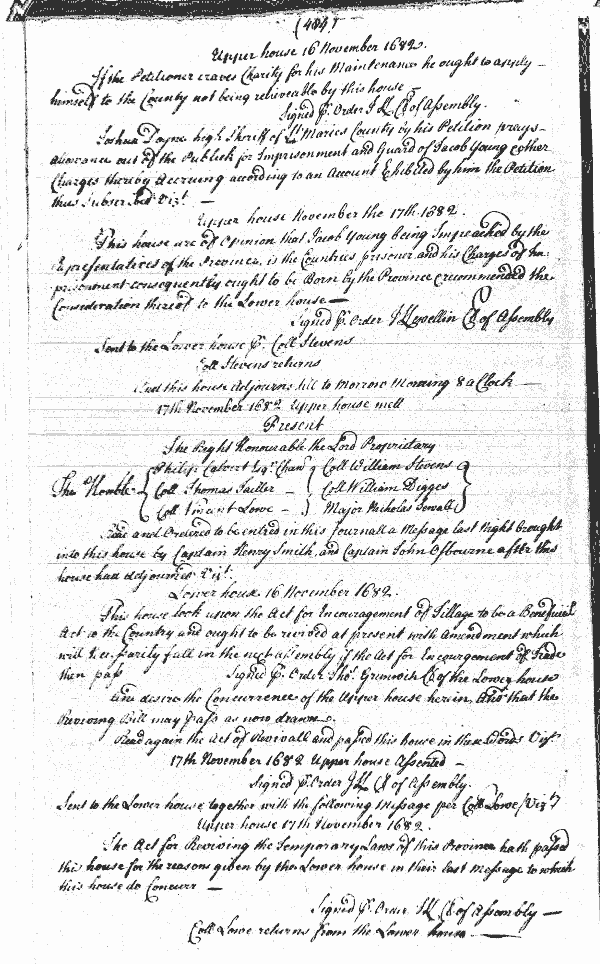 (484)
Upper house 16 November 1682.
If the Petitioner craves Charity for his Maintenance he ought to apply
himself to the County not being relieveable by this house
Signed p. Order J Ll Cl of Assembly.
Joshua Doyne high Sheriff of St Maries County by his Petition prays
allowance out of the Publick for Imprisonment and Guard of Jacob Young other
Charges thereby Accruing according to an Account Exhibited by him the Petition
thus Subscribed Vizt. —
Upper house November the 17th. 1682.
This house are of Opinion that Jacob Young being Impeached by the
Representatives of the Province, is the Countries prisoner and his Charges of Im-
prisonment consequently ought to be Born by the Province & recommended the
Consideration thereof to the Lower house —
Signed p. Order J Llewellin Cl of Assembly
Sent to the Lower house p. Coll Stevens
Coll Stevens returns
And this house Adjourns till to Morrow Morning 8 a Clock —
17th November 1682 Upper house mett
Present
The Right Honourable the Lord Proprietary
The Honble { Philip Calvert Esqr. Chanr { Coll William Stevens
Coll Thomas Tailler — Coll William Digges
Coll Vincent Lowe - Major Nicholas Sewall
Read and Ordered to be entred in this Journall a Message last Night brought
into this house by Captain Henry Smith, and Captain John Osbourne after this
house had Adjourned Vizt.
Lower house 16 November 1682.
This house look upon the Act for Encouragement of Tillage to be a Beneficiall
Act to the Country and ought to be revived at present with Amendment which
will necessarily fall in the next assembly if the Act for Encourgement of Trade
then pass Signed p. Order Thos. Grunwin Cl of the Lower house
and desire the Concurrence of the Upper house herein, And that the
Reviving Bill may pass as now drawn.
Read again the Act of Revivall and passed this house in these Words Vizt.
17th November 1682 Upper house Assented —
Signed p. Order J Ll Cl of Assembly.
Sent to the Lower house together with the following Message per Coll Lowe (Vizt)
Upper house 17th November 1682.
The Act for Reviving the Temporary Laws of this Province hath passed
this house for the reasons given by the Lower house in their last Message to which
this house do Concurr —
Signed p. Order J Ll Cl of Assembly —
Coll Lowe returns from the Lower house —